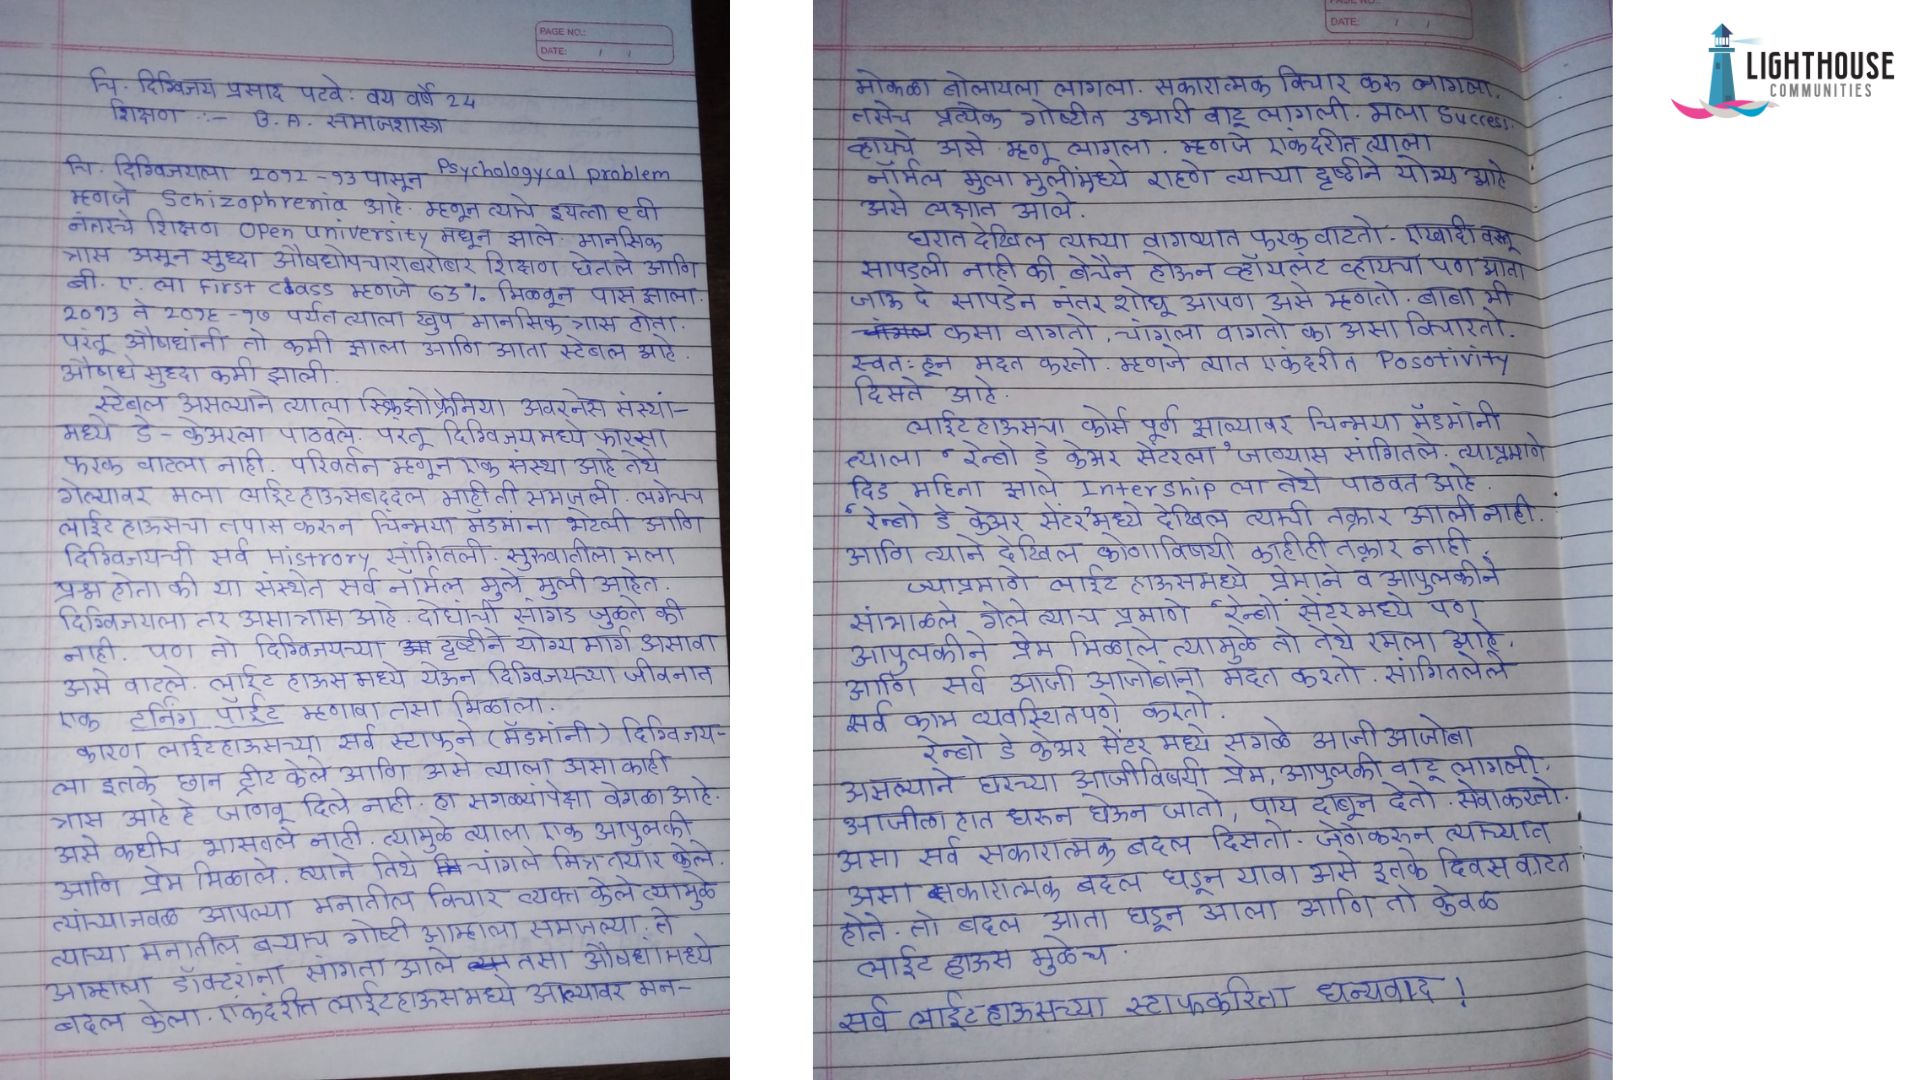 PAGE NO.:
DATE: / /
चि. दिग्विजय प्रसाद पटवे. वय वर्षे 24
शिक्षण :- B.A. समाजशास्त्र
चि. दिग्विजयला २०१२-१३ पासून Psychologycal problem
म्हणजे Schizophrenia आहे. म्हणून त्याचे इयत्ता ९ वी
नंतरचे शिक्षण open university मधून झाले. मानसिक
त्रास असून सुध्दा औषधोपचाराबरोबर शिक्षण घेतले आणि
बी. ए. ला First class म्हणजे 63% मिळवून पास झाला.
२०१३ ते २०१६-१७ पर्यंत त्याला खुप मानसिक त्रास होता.
परंतू औषधांनी तो कमी झाला आणि आता स्टेबल आहे.
औषधे सुध्दा कमी झाली.
स्टेबल असल्याने त्याला स्क्रिझोफ्रेनिया अवरनेस संस्थां-
मध्ये डे-केअरला पाठवले. परंतू दिग्विजयमध्ये फारसा
फरक वाटला नाही. परिवर्तन म्हणून एक संस्था आहे तेथे
गेल्यावर मला लाईट हाऊसबद्दल माहीती समजली. लगेचच
लाईट हाऊसचा तपास करून चिन्मया मॅडमांना भेटली आणि
दिग्विजयची सर्व Histrory सांगितली. सुरुवातीला मला
प्रश्न होता की या संस्थेत सर्व नॉर्मल मुले मुली आहेत.
दिग्विजयला तर असा त्रास आहे. दोघांची सांगड जुळते की
नाही. पण तो दिग्विजयच्या दृष्टीने योग्य मार्ग असावा
असे वाटले. लाईट हाऊस मध्ये येऊन दिग्विजयच्या जीवनात
एक टर्निंग पॉईंट म्हणावा तसा मिळाला.
कारण लाईटहाऊसच्या सर्व स्टाफने (मॅडमांनी) दिग्विजय-
ला इतके छान ट्रीट केले आणि असे त्याला असा काही
त्रास आहे हे जाणवू दिले नाही. हा सगळ्यांपेक्षा वेगळा आहे.
असे कधीच भासवले नाही. त्यामुळे त्याला एक आपुलकी
आणि प्रेम मिळाले. त्याने तिथे चांगले मित्र तयार केले.
त्यांच्याजवळ आपल्या मनातील विचार व्यक्त केले त्यामुळे
त्याच्या मनातील बऱ्याच गोष्टी आम्हाला समजल्या. ते
आम्हाला डॉक्टरांना सांगता आले तसा औषधांमध्ये
बदल केला. एकंदरीत लाईटहाऊसमध्ये आल्यावर मन-
PAGE NO.:
DATE: / /
मोकळा बोलायला लागला. सकारात्मक विचार करू लागला.
तसेच प्रत्येक गोष्टीत उभारी वाटू लागली. मला Success
व्हायचे असे म्हणू लागला. म्हणजे एकंदरीत त्याला
नॉर्मल मुला मुलींमध्ये राहणे त्याच्या दृष्टीने योग्य आहे
असे लक्षात आले.
घरात देखिल त्याच्या वागण्यात फरक वाटतो. एखादी वस्तू
सापडली नाही की बेचैन होऊन व्हॉयलंट व्हायचा पण आता
जाऊ दे सापडेन नंतर शोधू आपण असे म्हणतो. बाबा मी
कसा वागतो, चांगला वागतो का असा विचारतो.
स्वतःहून मदत करतो. म्हणजे त्यात एकंदरीत Posotivity
दिसते आहे.
लाईटहाऊसचा कोर्स पूर्ण झाल्यावर चिन्मया मॅडमांनी
त्याला "रेन्बो डे केअर सेंटरला" जाण्यास सांगितले. त्याप्रमाणे
दिड महिना झाले Intership ला तेथे पाठवत आहे.
"रेन्बो डे केअर सेंटर"मध्ये देखिल त्याची तक्रार आली नाही.
आणि त्याने देखिल कोणाविषयी काहीही तक्रार नाही.
ज्याप्रमाणे लाईट हाऊसमध्ये प्रेमाने व आपुलकीने
सांभाळले गेले त्याच प्रमाणे "रेन्बो" सेंटरमध्ये पण
आपुलकीने प्रेम मिळाले त्यामुळे तो तेथे रमला आहे.
आणि सर्व आजी आजोबांना मदत करतो. सांगितलेले
सर्व काम व्यवस्थितपणे करतो.
रेन्बो डे केअर सेंटर मध्ये सगळे आजी आजोबा
असल्याने घरच्या आजीविषयी प्रेम, आपुलकी वाटू लागली.
आजीला हात धरून घेऊन जातो, पाय दाबून देतो. सेवा करतो.
असा सर्व सकारात्मक बदल दिसतो. जेणेकरून त्याच्यात
असा सकारात्मक बदल घडून यावा असे इतके दिवस वाटत
होते. तो बदल आता घडून आला आणि तो केवळ
लाईट हाऊस मुळेच.
सर्व लाईटहाऊसच्या स्टाफकरिता धन्यवाद!
LIGHTHOUSE
COMMUNITIES